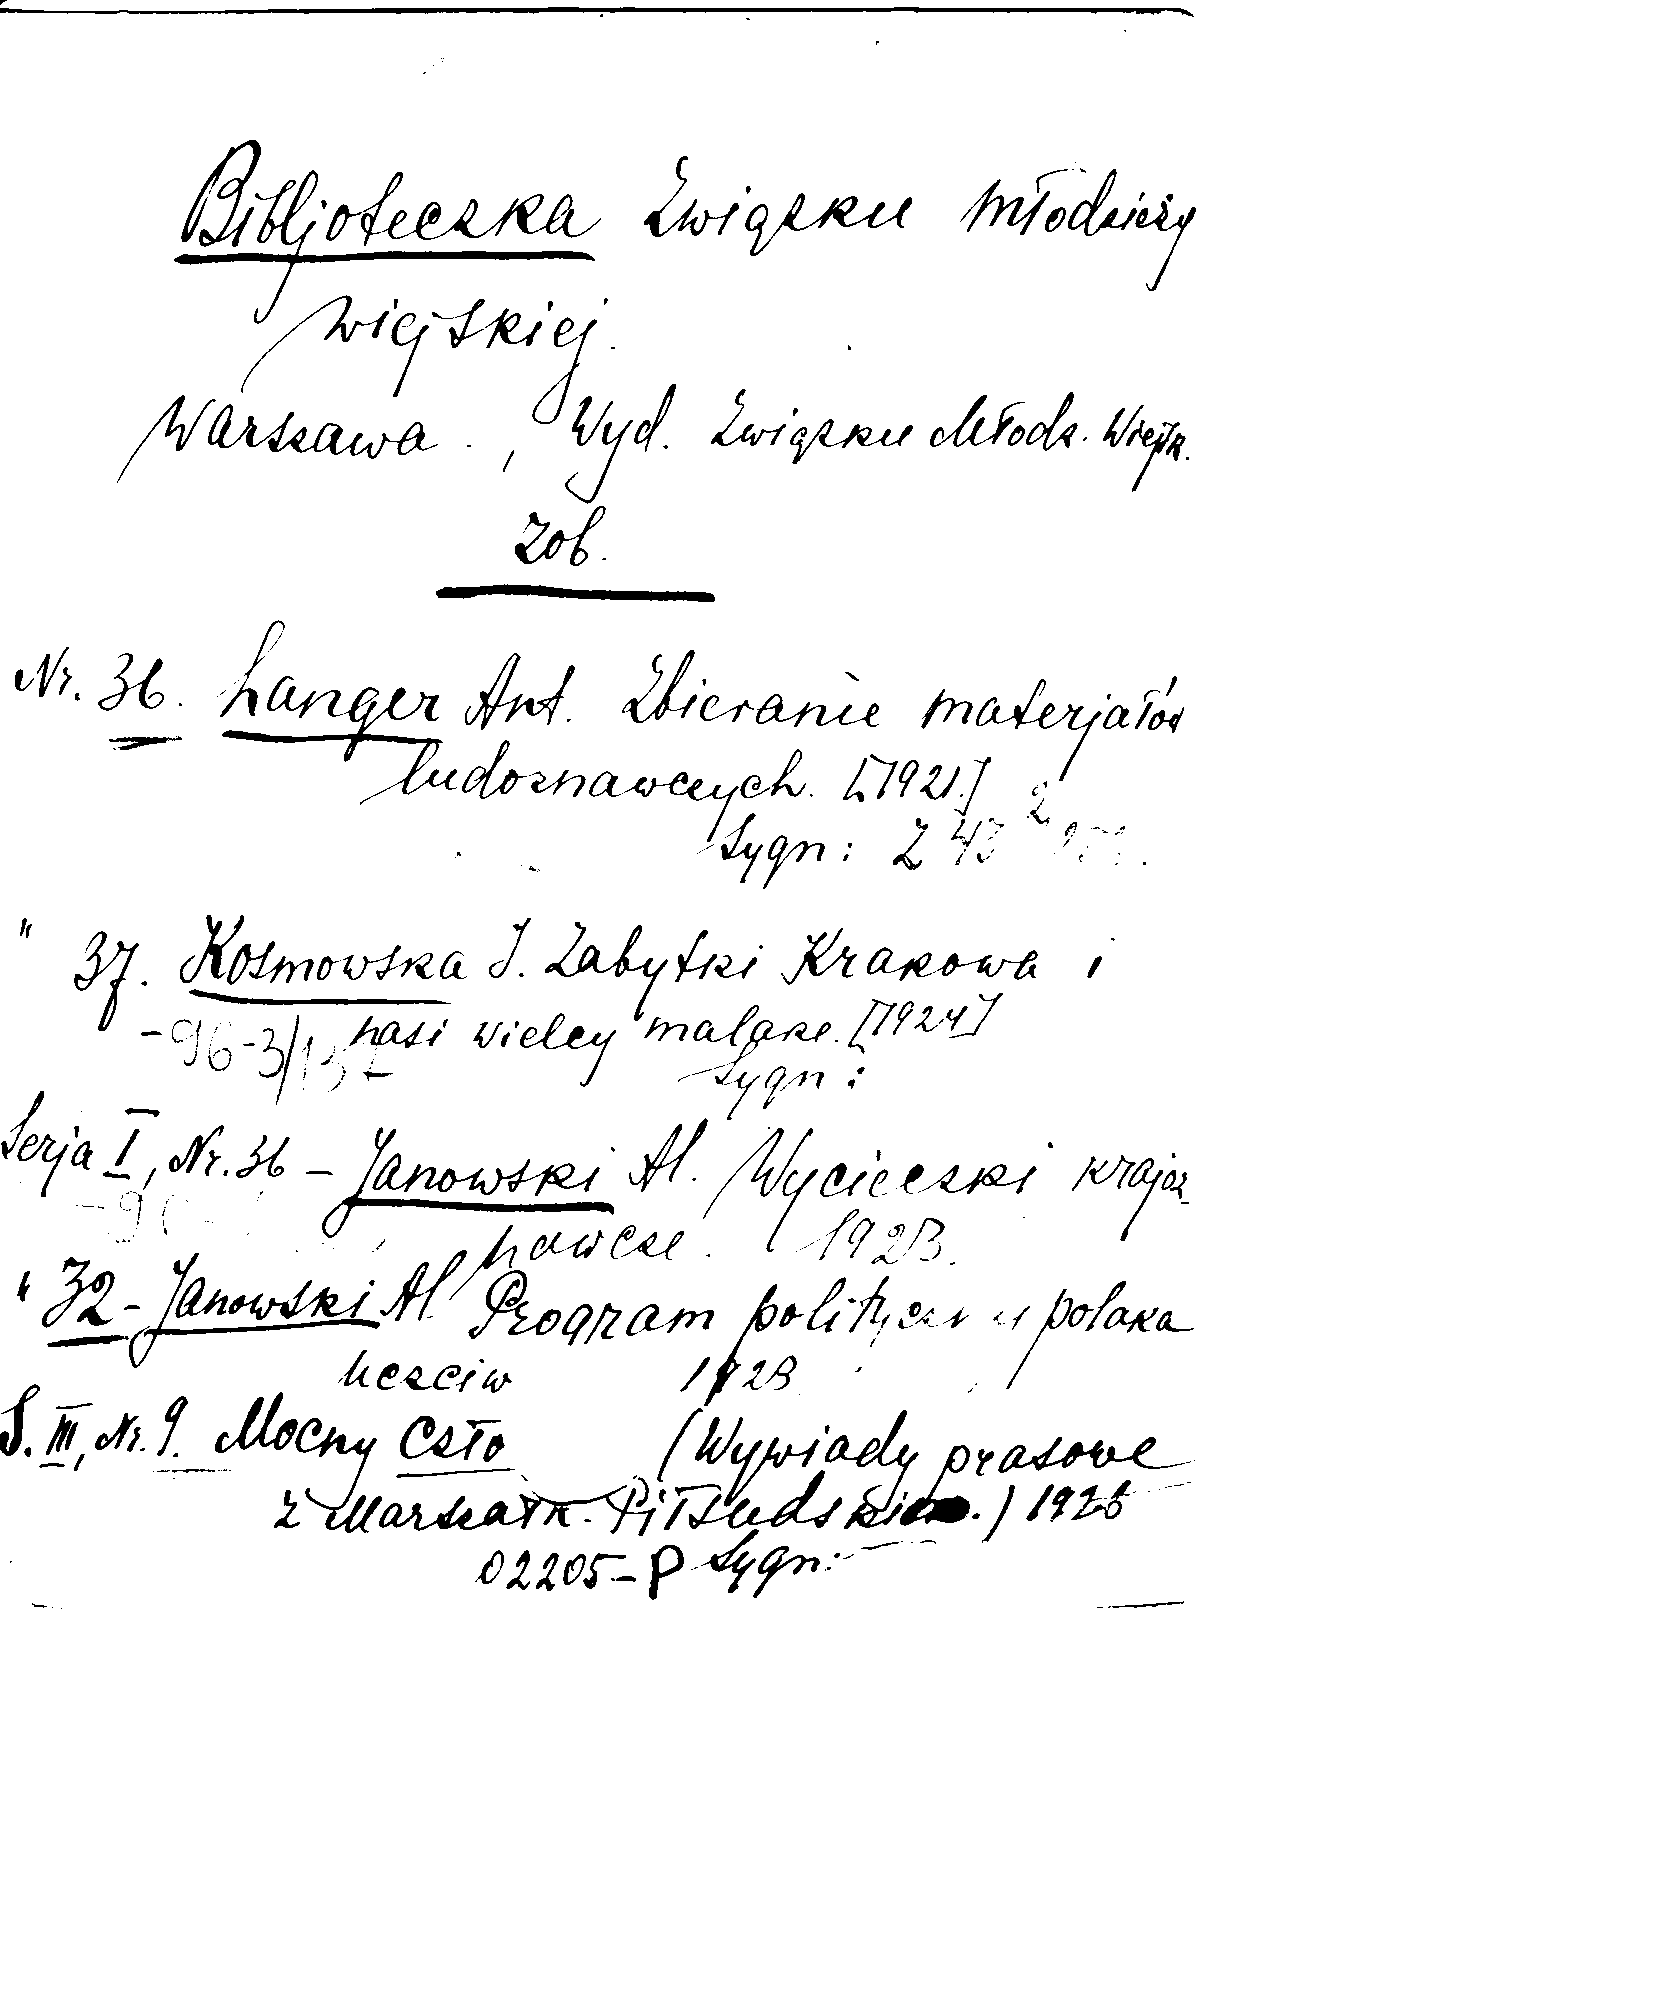 Bibljoteczka Związku Młodzieży
Wiejskiej.
Warszawa., Wyd. Związku Młodz. Wiejsk.
Zob.
Nr. 36. Langer Ant. Zbieranie materjałów
ludoznawczych. [1921.]
Sygn: Z 43
" 37. Kosmowska I. Zabytki Krakowa i
nasi wielcy malarze. [1924]
-96-3/13
Sygn:
Serja I, Nr. 36 - Janowski Al. Wycieczki krajoz-
nawcze. 1923.
" 32 - Janowski Al. Program polityczny polaka
uczciw 1923
S. III, Nr. 9. Mocny Czło (Wywiady prasowe
z Marszałk. Piłsudskim.) 1926
02205-P Sygn: